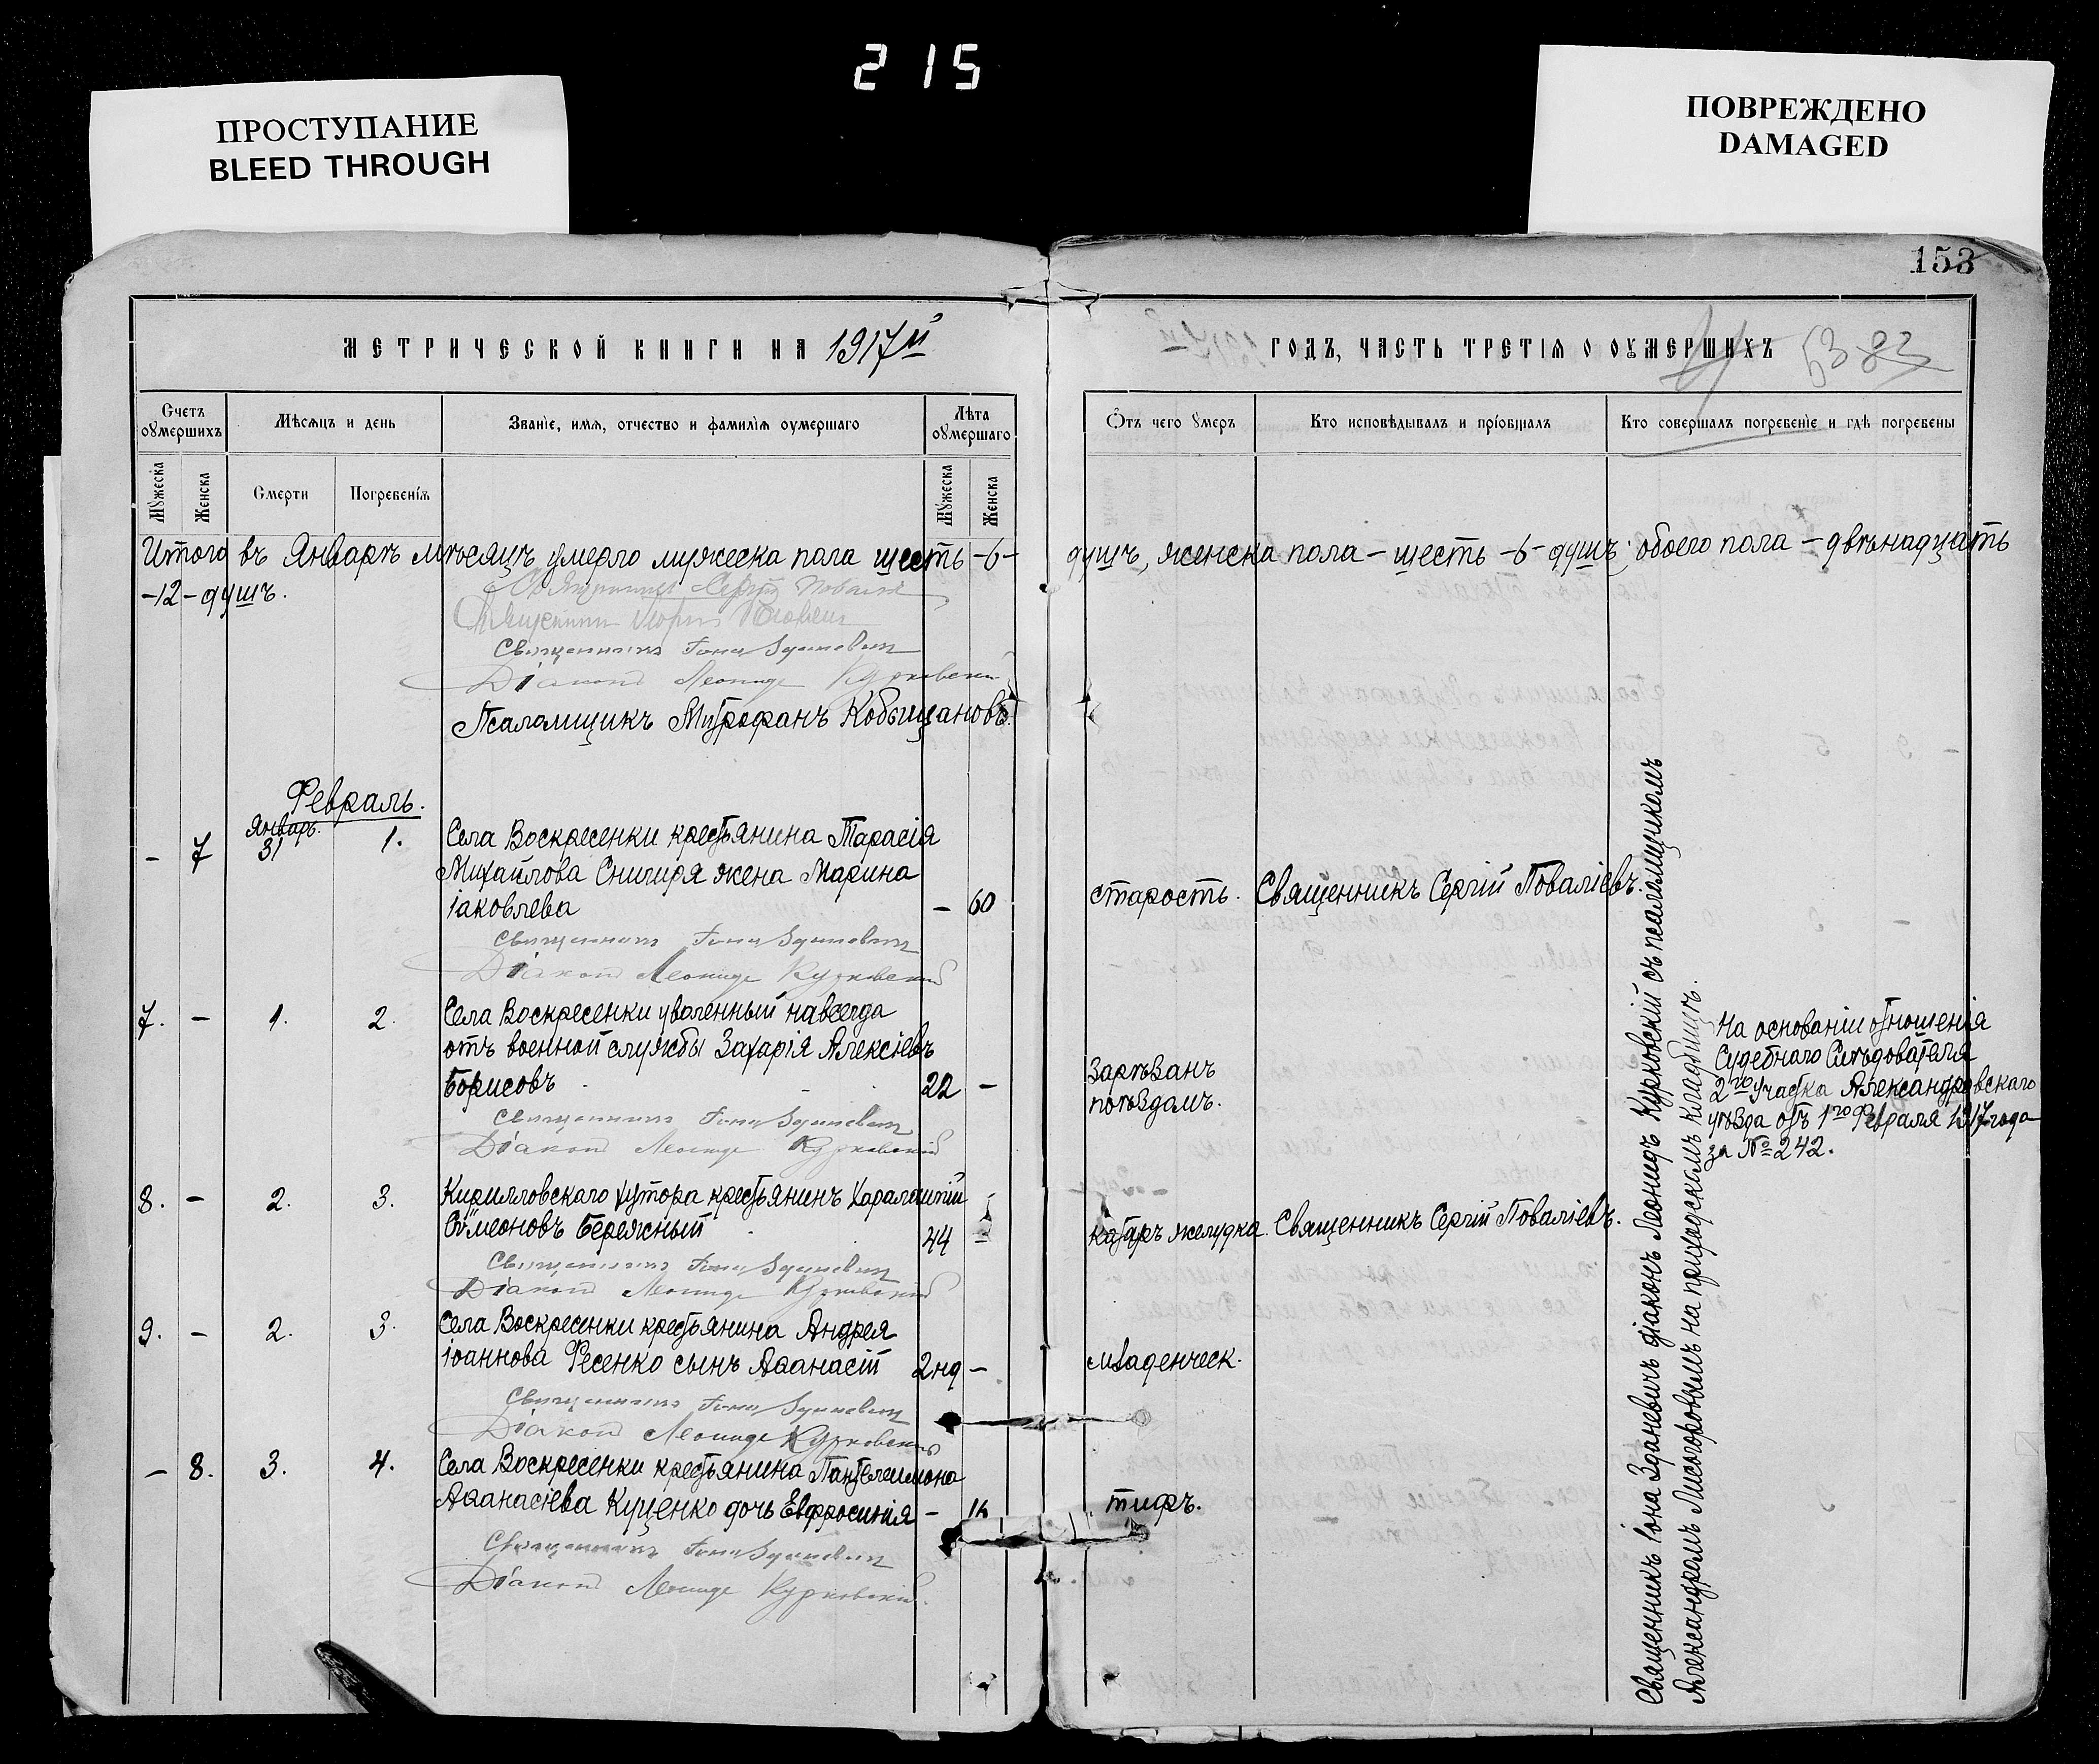 215
ПРОСТУПАНИЕ
BLEED THROUGH
ПОВРЕЖДЕНО
DAMAGED
153
МЕТРИЧЕСКОЙ КНИГИ НА 1917й
ГОДЪ, ЧАСТЬ ТРЕТІЯ О ОУМЕРШИХЪ
53 83
Счетъ оумершихъ
Мѣсяцъ и день
Званіе, имя, отчество и фамилія оумершаго
Лѣта оумершаго
Отъ чего умеръ
Кто исповѣдывалъ и пріобщалъ
Кто совершалъ погребеніе и гдѣ погребены
Мужеска
Женска
Смерти
Погребенія
Мужеска
Женска
Итого въ Январѣ мѣсяцѣ умерло мужеска пола шесть -6- душъ, женска пола - шесть -6- душъ; обоего пола - двѣнадцать
-12- душъ.
Священникъ Сергій Поваліевъ
Священникъ
Священникъ Іона Зданевичъ
Діаконъ Леонидъ Курковскій
Псаломщикъ Митрофанъ Кобыщановъ.
Февраль.
- 7 Январь. 31 1. Села Воскресенки крестьянина Тарасія
Михайлова Снигиря жена Марина
Іаковлева - 60 старость. Священникъ Сергій Поваліевъ.
Священникъ Іона Зданевичъ
Діаконъ Леонидъ Курковскій
7. - 1. 2. Села Воскресенки уволенный навсегда
отъ военной службы Захарія Алексіевъ
Борисовъ 22 - Зарѣзанъ
поѣздомъ.
На основаніи отношенія
Судебнаго Слѣдователя
2го Участка Александровскаго
уѣзда отъ 1го Февраля 1917 года
за № 242.
Священникъ Іона Зданевичъ
Діаконъ Леонидъ Курковскій
8. - 2. 3. Кирилловскаго хутора крестьянинъ Харалампій
Сѵмеоновъ Бережный 44 - катаръ желудка. Священникъ Сергій Поваліевъ.
Священникъ Іона Зданевичъ
Діаконъ Леонидъ Курковскій
9. - 2. 3. Села Воскресенки крестьянина Андрея
Іоаннова Фесенко сынъ Аѳанасій 2 нд - младенческ.
Священникъ Іона Зданевичъ
Діаконъ Леонидъ Курковскій
- 8. 3. 4. Села Воскресенки крестьянина Пантелеимона
Аѳанасіева Куценко дочь Евфросинія - 16 тифъ.
Священникъ Іона Зданевичъ
Діаконъ Леонидъ Курковскій.
Священникъ Іона Зданевичъ діаконъ Леонидъ Курковскій съ псаломщикомъ
Александромъ Лисогоровымъ на приходскомъ кладбищѣ.